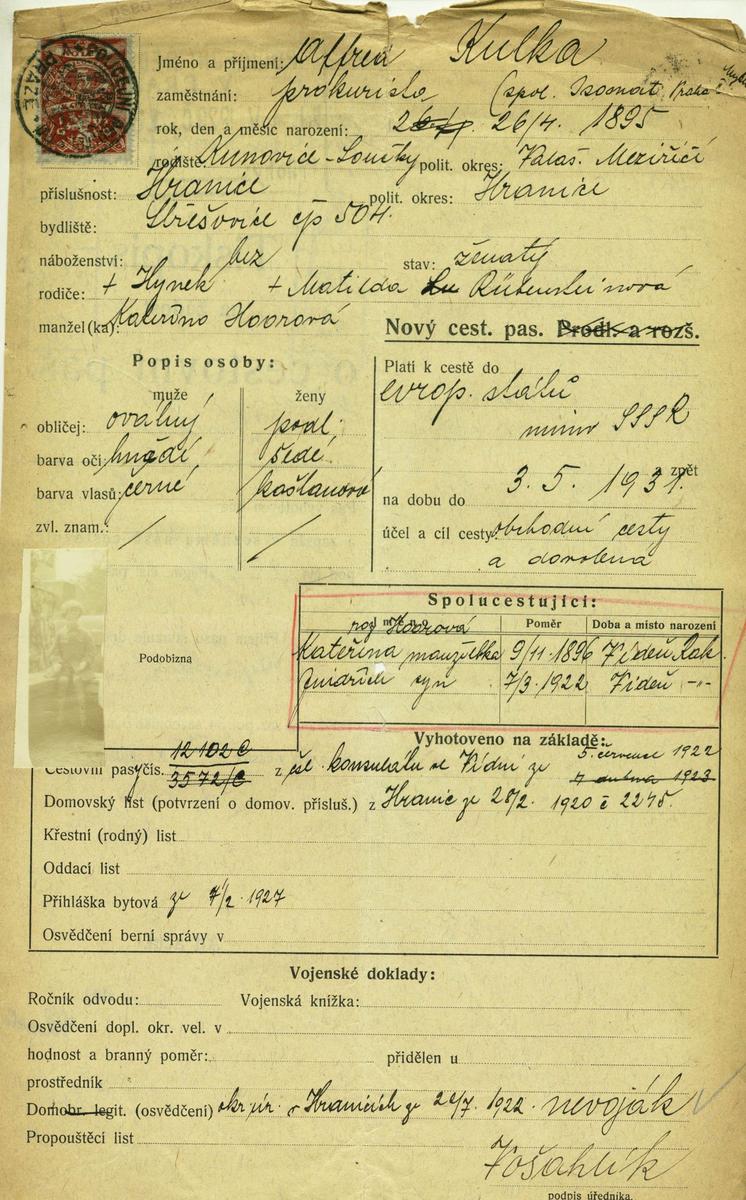 Jméno a příjmení: Alfred Kulka
zaměstnání: prokurista (spol. Isomat, Praha
rok, den a měsíc narození: 26/4. 1895
rodiště: Kunovice-Loučky polit. okres: Valaš. Meziříčí
příslušnost: Hranice polit okres: Hranice
bydliště: Střešovice čp 504.
náboženství: bez stav: ženatý
rodiče: + Hynek + Matilda Rübensteinová
manžel(ka) Kateřina Hoorová
Nový cest. pas. Prodl. a rozš.
Popis osoby:
muže ženy
obličej: oválný podl.
barva očí: hnědé šedé
barva vlasů: černé kaštanové
zvl. znam.: / /
Platí k cestě do
evrop. států
mimo SSSR
zpět
na dobu do 3. 5. 1931.
účel a cíl cesty obchodní cesty
a dovolená
Podobizna
Spolucestující:
Jméno Poměr Doba a místo narození
roz Hoorová
Kateřina manželka 9/11. 1896 Vídeň Rak.
Jindřich syn 7/3. 1922 Vídeň -"-
Vyhotoveno na základě:
12102 C 5. července 1922
Cestovní pasy čís. 3572/C z čsl. konsulátu ve Vídni ze 7 dubna 1923
Domovský list (potvrzení o domov. přísluš.) z Hranic ze 28/2. 1920 č 2275.
Křestní (rodný) list
Oddací list
Přihláška bytová ze 7/2. 1927
Osvědčení berní správy v
Vojenské doklady:
Ročník odvodu: Vojenská knížka:
Osvědčení dopl. okr. vel. v
hodnost a branný poměr: přidělen u
prostředník
Domobr. legit. (osvědčení) okr. úř. v Hranicích ze 22/7. 1922. nevoják
Propouštěcí list
Vošahlík
podpis úředníka.